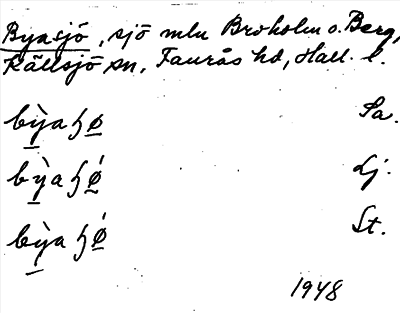 Byasjö, sjö mln Broholm o. Berg,
Källsjö sn, Faurås hd, Hall. l.
bỳ̱aɧø̱ Sa.
bỳ̱aɧǿ̱ Lj.
bỳ̱aɧǿ̱ St.
1948